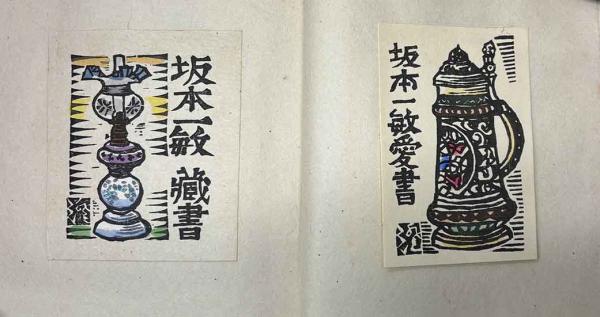 坂本一敏 藏書
坂本一敏愛書